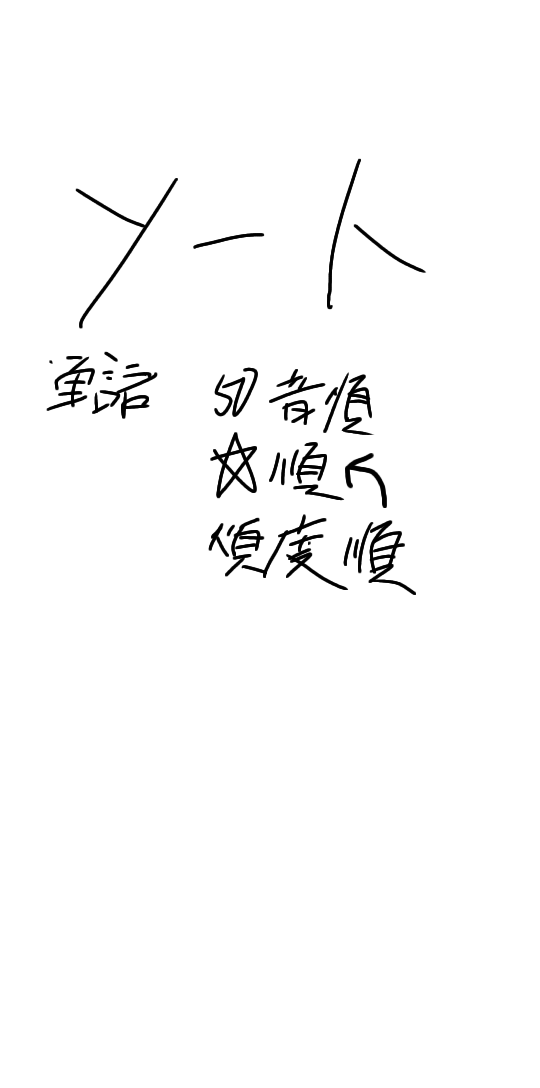 ソート
電話 50音順
☆順↖
頻度順